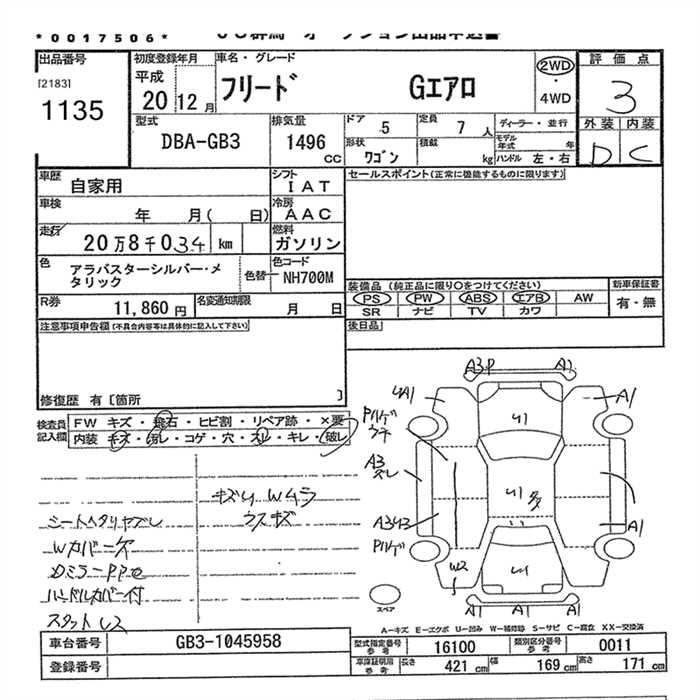 *0017506*
出品番号
[2183]
1135
初度登録年月
平成
20 12月
車名・グレード
フリード Gエアロ
2WD
4WD
評価点
3
外装 内装
D C
型式
DBA-GB3
排気量
1496
cc
ドア 5
定員 7 人
形状 ワゴン
積載 kg
ディーラー・並行
モデル年式 年
ハンドル 左・右
車歴
自家用
シフト
IAT
セールスポイント(正常に機能するものに限ります)
車検 年 月( 日)
冷房
AAC
走行
20万8千034 km
燃料
ガソリン
色
アラバスターシルバー・メタリック
色替
色コード
NH700M
装備品 (純正品に限り○をつけてください)
新車保証書
PS PW ABS エアB AW
有・無
SR ナビ TV カワ
R券 11,860円
名変通知期限 月 日
後日品
注意事項申告欄(不具合内容等は具体的に記入して下さい)
修復歴 有[箇所 ]
検査員記入欄
FW キズ・飛石・ヒビ割・リペア跡・×要
内装 キズ・汚レ・コゲ・穴・スレ・キレ・破レ
キズU Wムラ
ウスキズ
Wカバー欠
ハンドルカバー付
A3P
A1
4A1
A1
U1
Pハゲ
A3
スレ
U1
A1
Pハゲ
W2
U1
A1 A1 A1
スペア
A-キズ E-エクボ U-凹み W-補修跡 S-サビ C-腐食 XX-交換済
車台番号 GB3-1045958
型式指定番号 参考 16100
類別区分番号 参考 0011
登録番号
車庫証明用 参考 長さ 421cm 幅 169cm 高さ 171cm